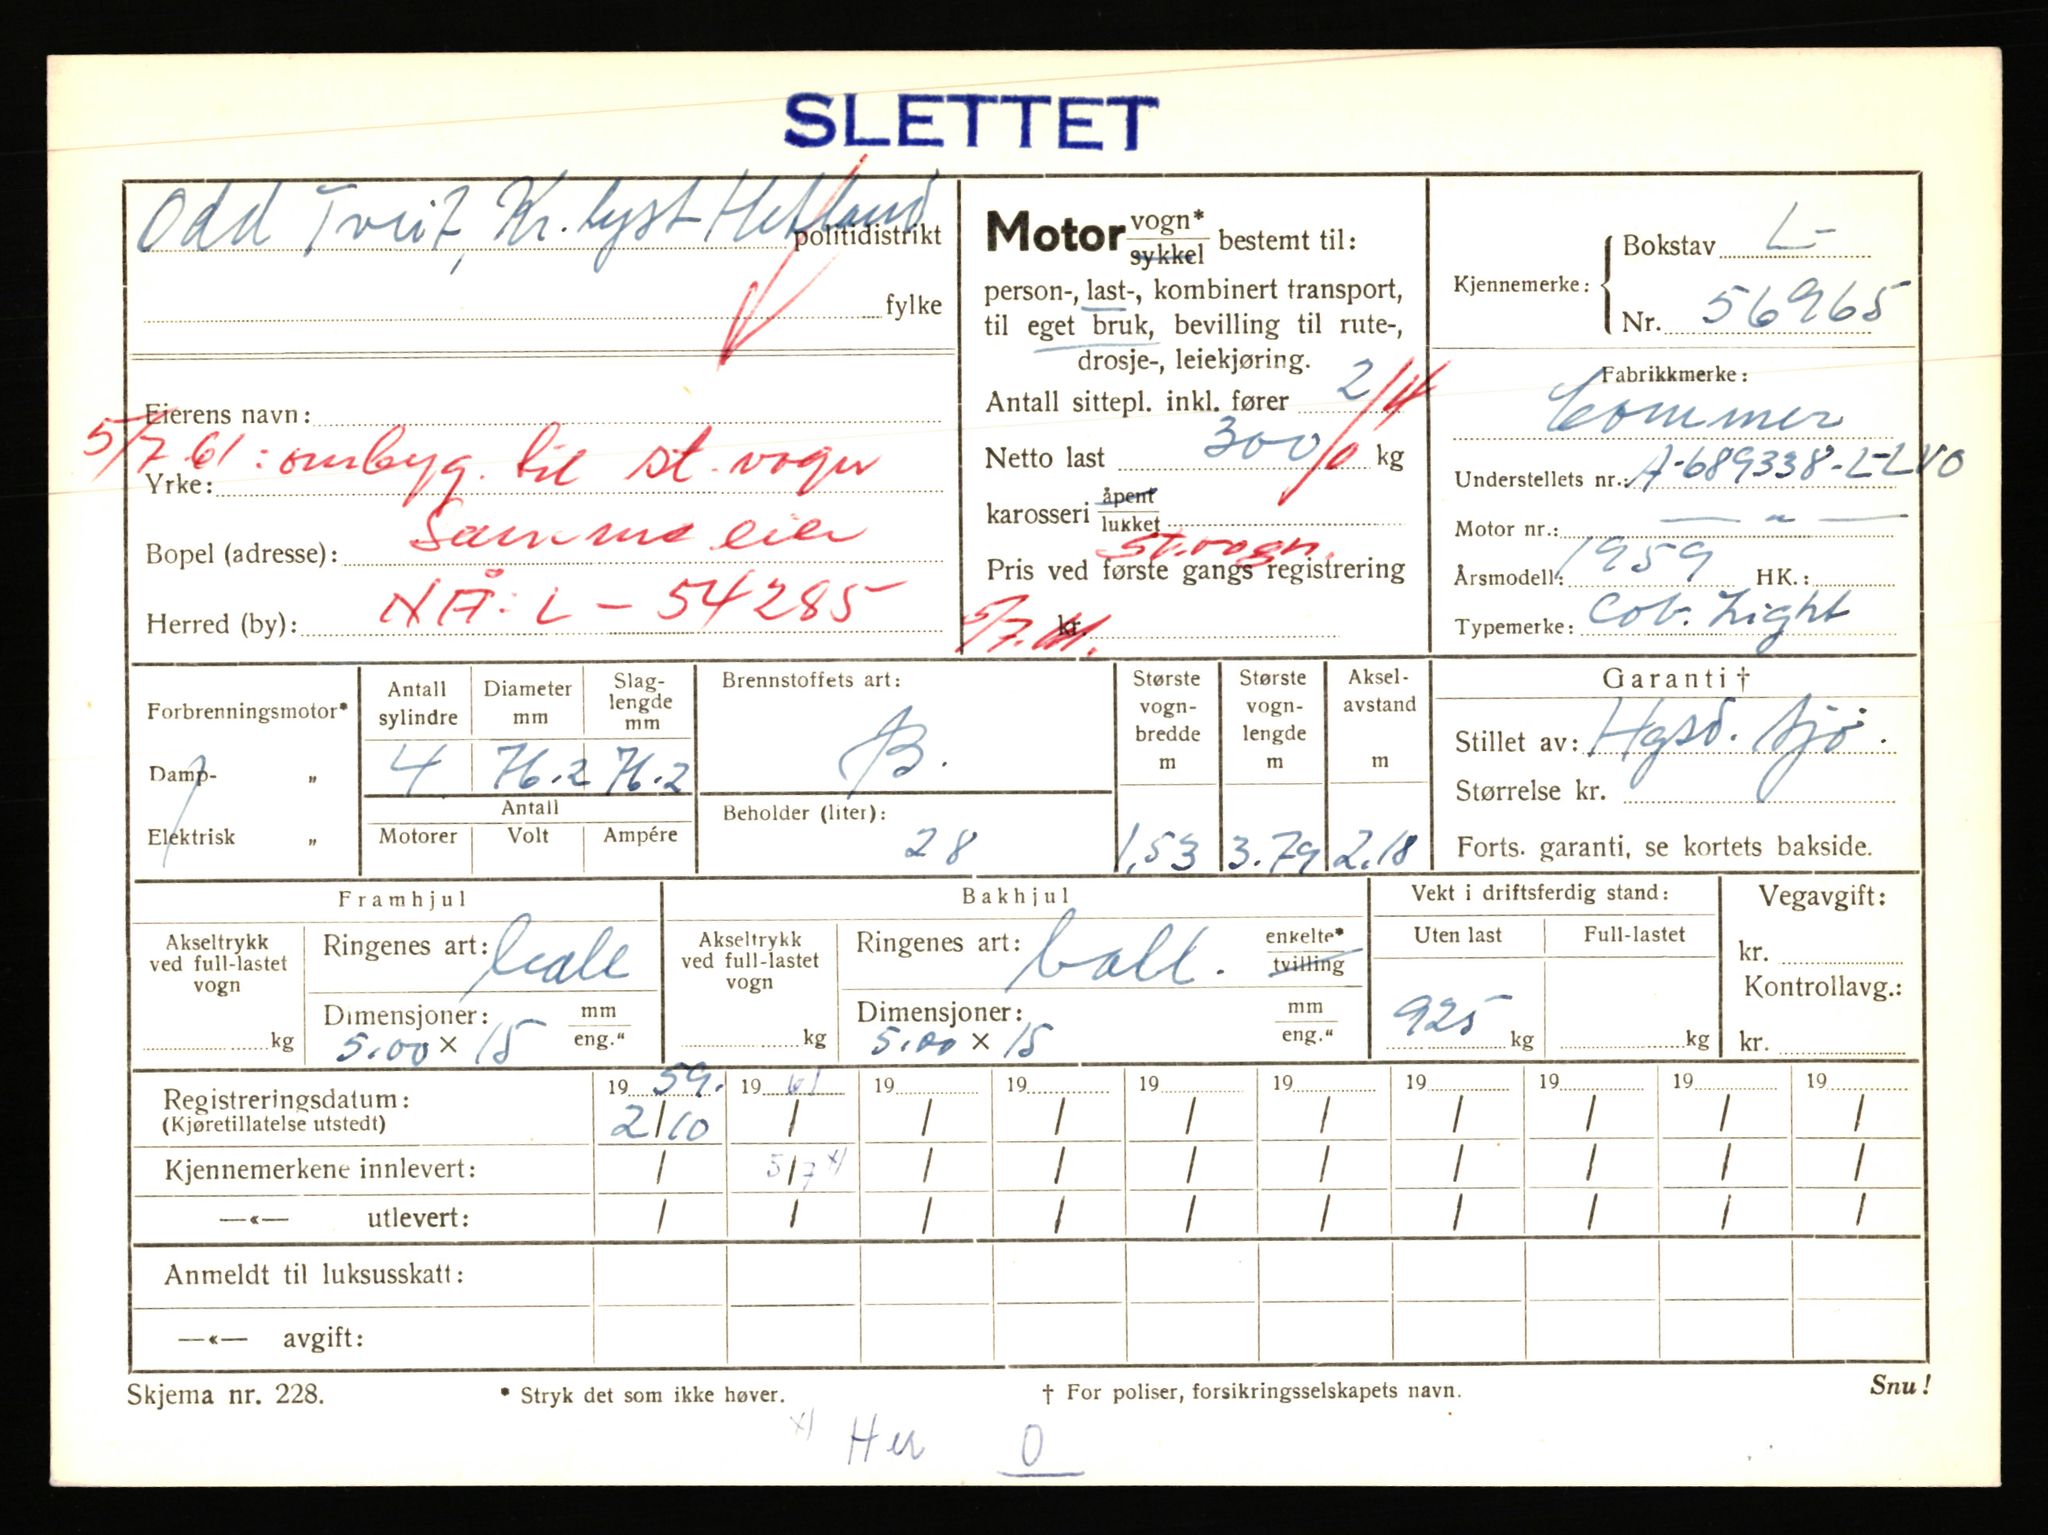 SLETTET
Odd Tveit, Kr. lyst Hetland
politidistrikt
fylke
Eierens navn:
5/7 61: ombyg. til st. vogn
Yrke:
Samme eier
Bopel (adresse):
NÅ: L - 54285
Herred (by):
Motor vogn* / sykkel bestemt til:
person-, last-, kombinert transport,
til eget bruk, bevilling til rute-,
drosje-, leiekjøring.
Antall sittepl. inkl. fører 2/4
Netto last 300/0 kg
karosseri åpent / lukket
St. vogn.
Pris ved første gangs registrering
5/7.61.
kr.
Kjennemerke: Bokstav L-
Nr. 56965
Fabrikkmerke:
Commer
Understellets nr.: A-689338-L-LVO
Motor nr.: — " —
Årsmodell: 1959 HK.:
Typemerke: Cob. Light
Forbrenningsmotor*
Damp- „
Elektrisk „
Antall sylindre 4
Diameter mm 76.2
Slag-lengde mm 76.2
Antall
Motorer Volt Ampére
Brennstoffets art:
B.
Beholder (liter):
28
Største vogn-bredde m 1,53
Største vogn-lengde m 3.79
Aksel-avstand m 2,18
Garanti †
Stillet av: Hgsd. Sjø.
Størrelse kr.
Forts. garanti, se kortets bakside.
Framhjul
Akseltrykk ved full-lastet vogn
kg
Ringenes art:
Dimensjoner: mm / eng."
5.00 × 15
Bakhjul
Akseltrykk ved full-lastet vogn
kg
Ringenes art: ball. enkelte* / tvilling
Dimensjoner: mm / eng."
5.00 × 15
Vekt i driftsferdig stand:
Uten last Full-lastet
925 kg kg
Vegavgift:
kr.
Kontrollavg.:
kr.
19 59. 19 61 19 19 19 19 19 19 19 19
Registreringsdatum: 2/10 / / / / / / / / /
(Kjøretillatelse utstedt)
Kjennemerkene innlevert: / 5/7 x) / / / / / / / /
—«— utlevert: / / / / / / / / / /
Anmeldt til luksusskatt:
—«— avgift:
Skjema nr. 228. * Stryk det som ikke høver. † For poliser, forsikringsselskapets navn. Snu!
x) Her 0